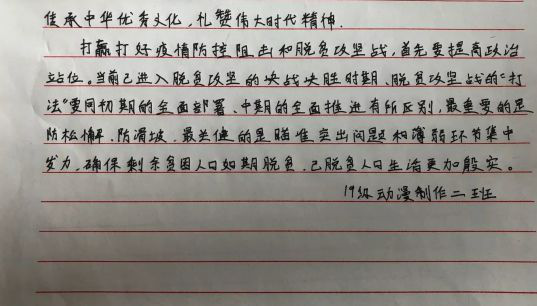 传承中华优秀文化，礼赞伟大时代精神.
打赢打好疫情防控阻击和脱贫攻坚战，首先要提高政治
站位。当前已进入脱贫攻坚的决战决胜时期、脱贫攻坚战的“打
法”要同初期的全面部署、中期的全面推进有所区别，最重要的是
防松懈、防滑坡、最关键的是瞄准突出问题和薄弱环节集中
发力，确保剩余贫困人口如期脱贫、已脱贫人口生活更加殷实。
19级动漫制作二班